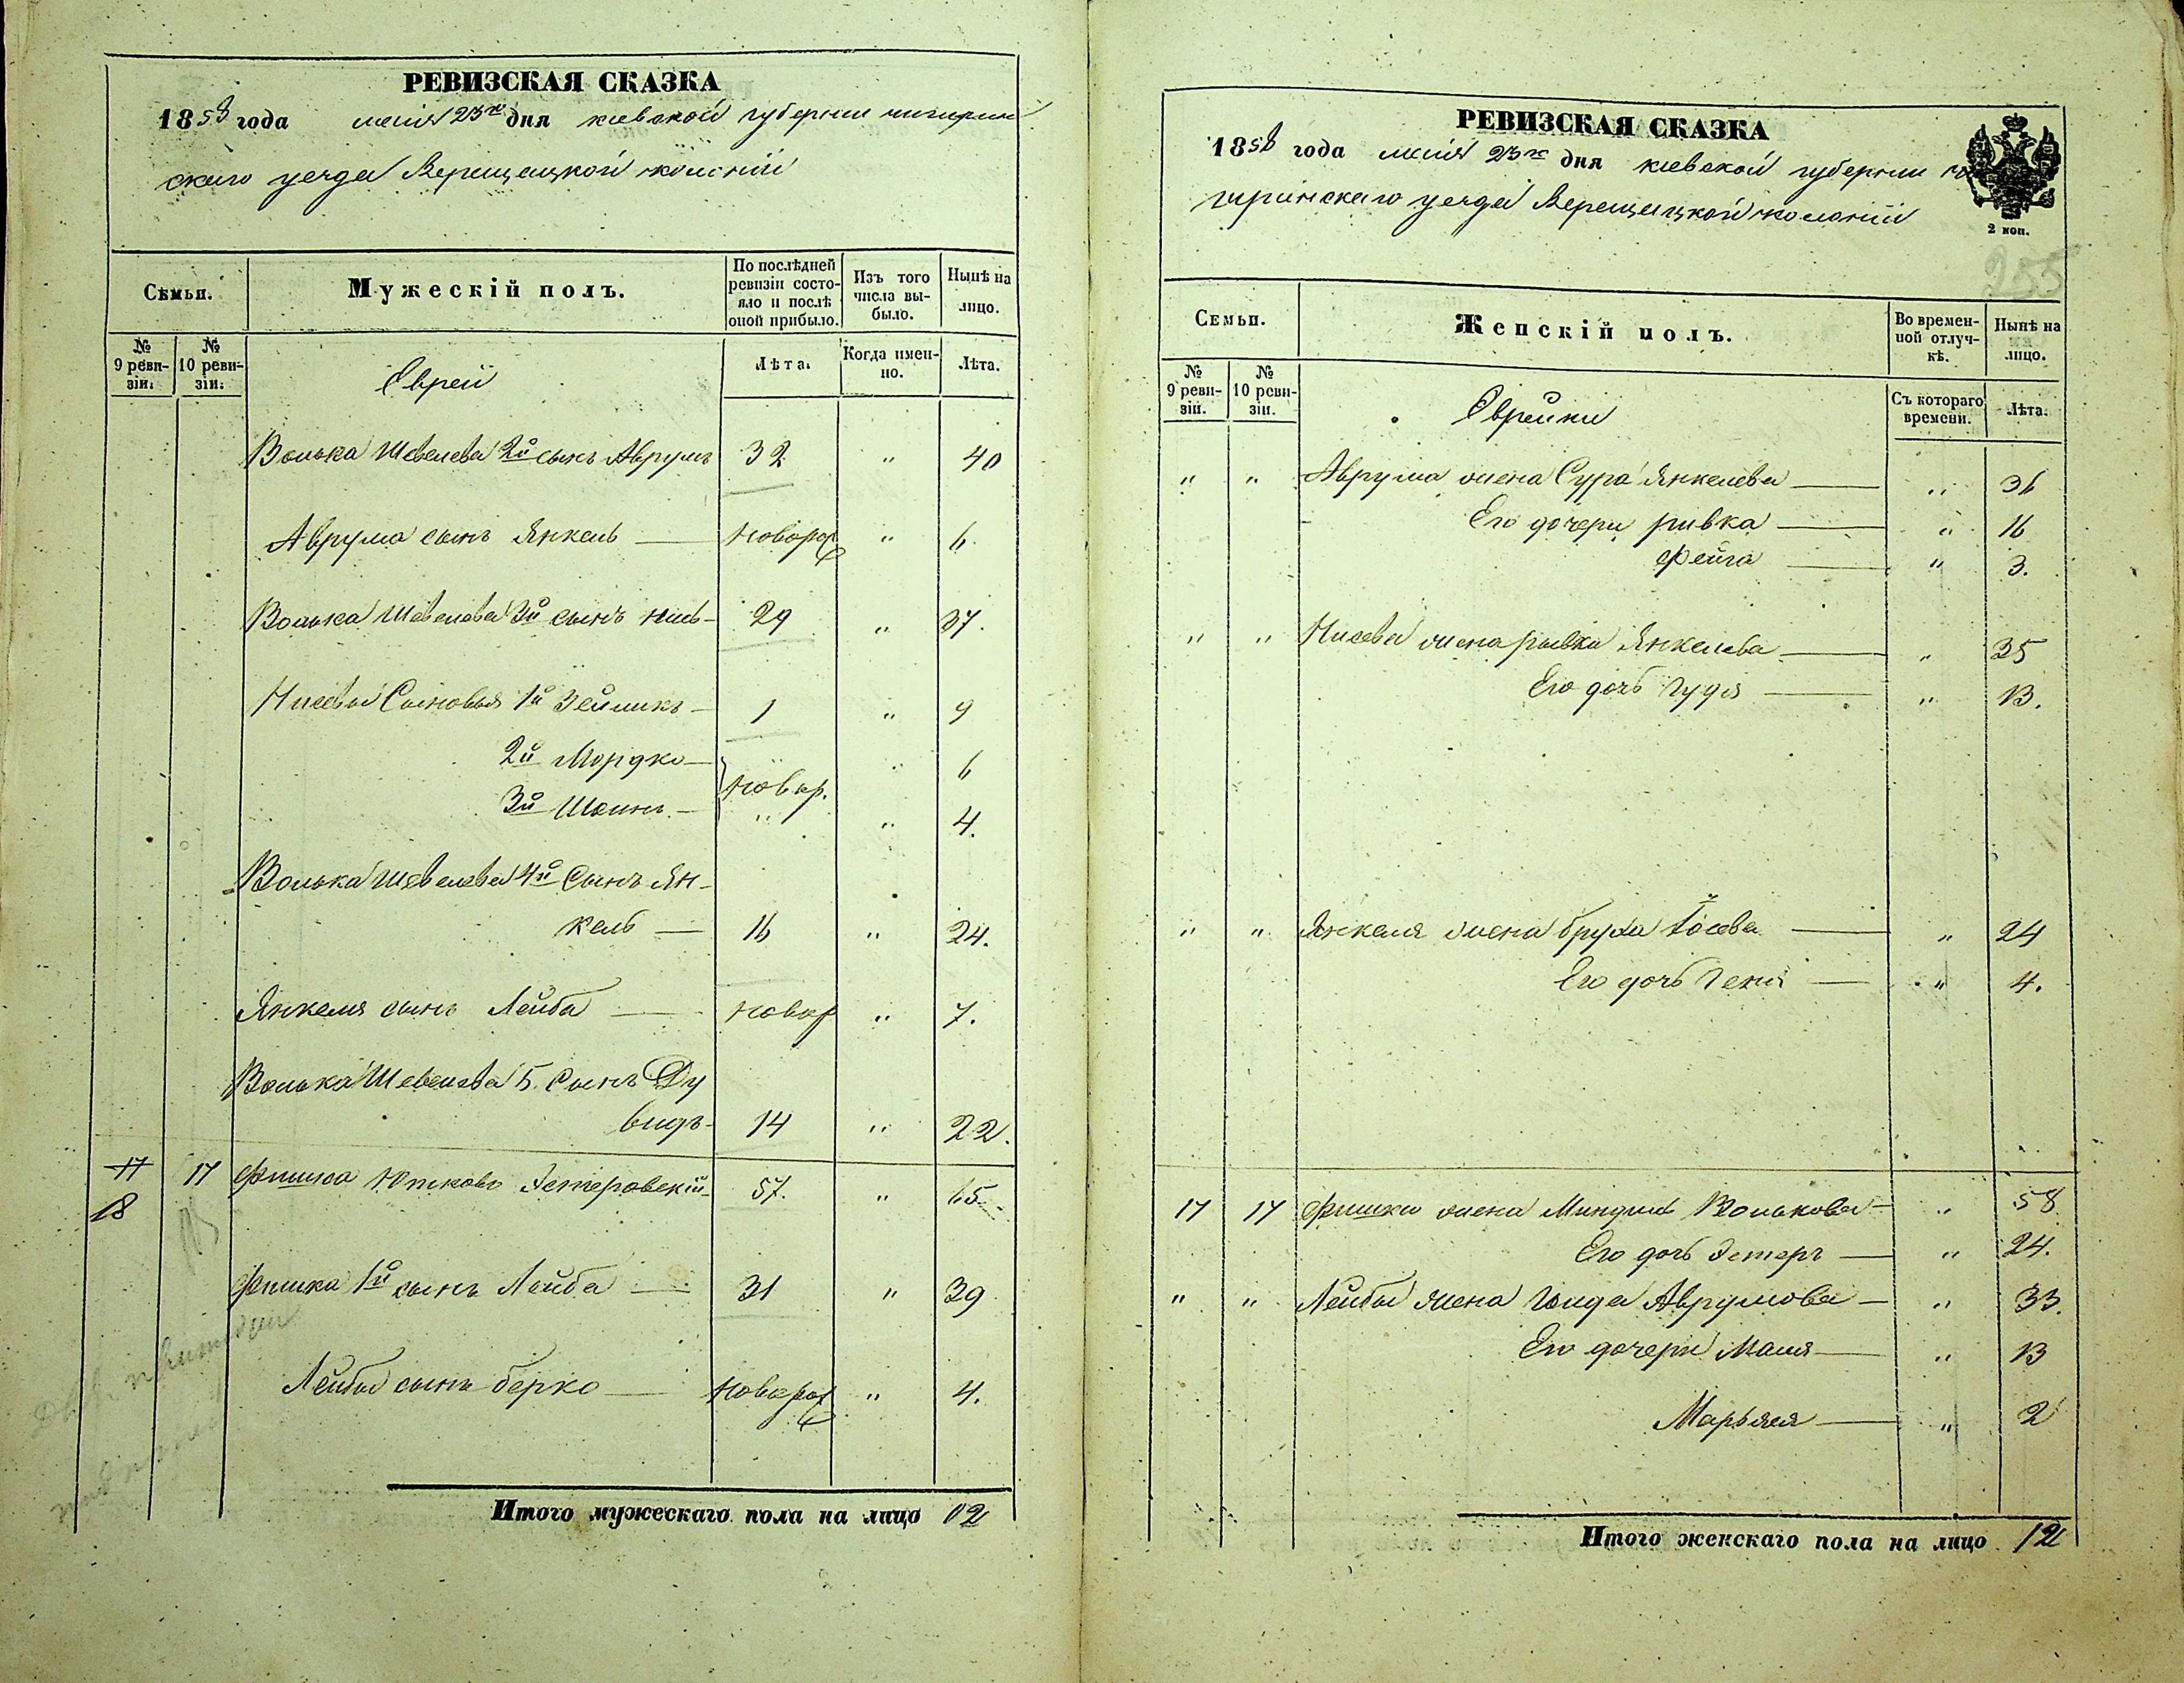 РЕВИЗСКАЯ СКАЗКА
1858 года маія 23го дня кіевской губерніи чигирин
скаго уезда Верещацкой колоніи
Семьи.
Мужескій полъ.
По послѣдней ревизіи состояло и послѣ оной прибыло.
Изъ того числа выбыло.
Нынѣ на лицо.
№ 9 ревизіи.
№ 10 ревизіи.
Евреи
Лѣта.
Когда именно.
Лѣта.
Волька Шевелева 2й сынъ Аврумъ 32 " 40
Аврума сынъ Янкель — новорож " 6.
Волька Шевелева 3й сынъ Нись- 29 " 37.
Нисевы Сыновья 1й Зейликъ - 1 " 9
2й Мордко — новор. " 6
3й - " " 4.
Волька Шевелева 4й Сынъ Ян-
кель — 16 " 24.
Янкеля сынъ Лейба — новор " 7.
Волька Шевелева 5. Сынъ Ду
видъ - 14 " 22.
17 17 Фишка Эстеровскій - 57. " 65
18
Фишка 1й сынъ Лейба — 31 " 39
Лейбы сынъ берко — новорож " 4.
Итого мужескаго пола на лицо 12
РЕВИЗСКАЯ СКАЗКА
1858 года маія 23го дня кіевской губерніи чи
гиринскаго уезда Верещацкой колоніи
2 коп.
255
Семьи.
Женскій полъ.
Во временной отлучкѣ.
Нынѣ на лицо.
№ 9 ревизіи.
№ 10 ревизіи.
Еврейки
Съ котораго времени.
Лѣта.
" " Аврума жена Сура Янкелева — " 36
Его дочери ривка — " 16
Фейга — " 3.
" " Нисева жена рывка Янкелева — " 35
Его дочь Гудя — " 13.
" " Янкеля жена бруха Іосева — " 24
Его дочь Геня — " 4.
17 17 Фишки жена Миндля Волькова — " 58
Его дочь Эстеръ — " 24.
" " Лейбы жена Аврумова — " 33.
Его дочери Маля — " 13
Марьяся — " 2
Итого женскаго пола на лицо 12